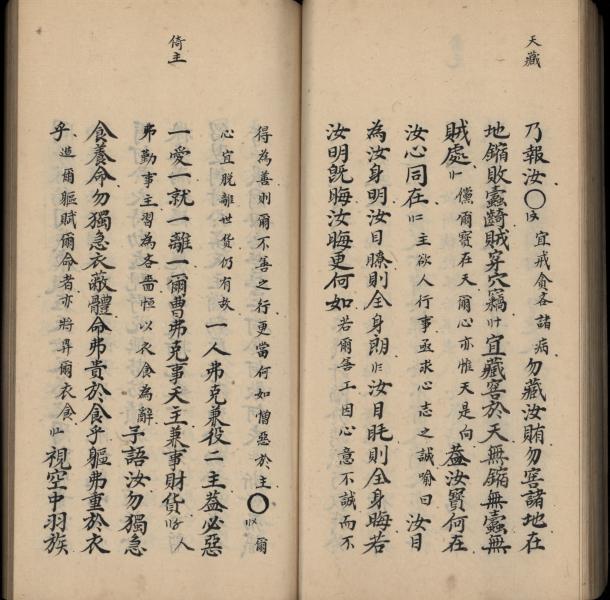 天藏
乃報汝〇宜戒貪吝諸病勿藏汝賄勿窖諸地在
地鏥敗蠹齮賊穿穴竊宜藏窖於天無鏥無蠹無
賊處儻爾寶在天爾心亦惟天是向蓋汝寶何在
汝心同在主欲人行事亟求心志之誠喻曰汝目
為汝身明汝目瞭則全身朗汝目眊則全身晦若
汝明旣晦汝晦更何如若爾善工因心意不誠而不
倚主
得為善則爾不善之行更當何如憎惡於主〇爾
心宜脫離世貨仍有故一人弗克兼役二主蓋必惡
一愛一就一離一爾曹弗克事天主兼事財貨人
弗勤事主習為吝嗇恒以衣食為辭予語汝勿獨急
食養命勿獨急衣蔽體命弗貴於食乎軀弗重於衣
乎造爾軀賦爾命者亦將畀爾衣食視空中羽族